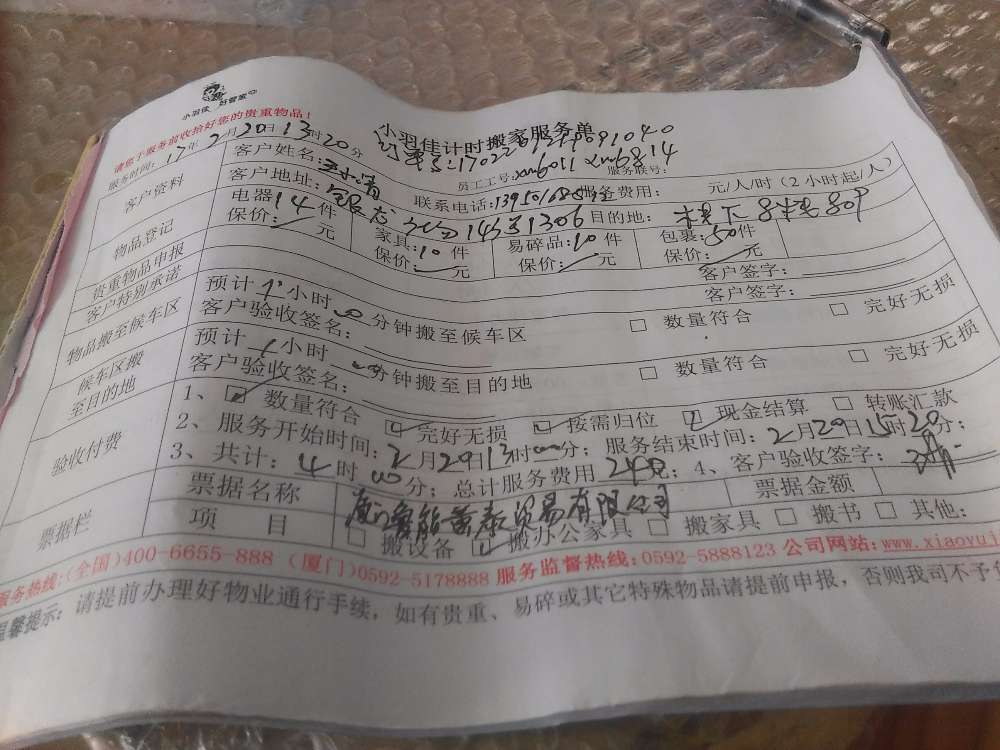 小羽佳 好管家
请您于服务前收拾好您的贵重物品!
小羽佳计时搬家服务单
服务时间: 17年2月20日13时20分
员工工号: xm6011 xm6814 服务联号:
客户资料 客户姓名: 联系电话: 服务费用: 元/人/时 (2小时起/人)
客户地址: 目的地: 楼下
物品登记 电器14件 家具:10件 易碎品:10件 包裹:50件
保价: 元 保价: 元 保价: 元 保价: 元
贵重物品申报 客户签字:
客户特别承诺 客户签字:
物品搬至候车区 预计 小时 分钟搬至候车区 □ 数量符合 □ 完好无损
客户验收签名:
候车区搬至目的地 预计 小时 分钟搬至目的地 □ 数量符合 □ 完好无损
客户验收签名:
验收付费 1、☑ 数量符合 ☑ 完好无损 ☑ 按需归位 ☑ 现金结算 □ 转账汇款
2、服务开始时间: 2月20日13时 分; 服务结束时间: 2月20日15时20分;
3、共计: 4时00分; 总计服务费用 ; 4、客户验收签字:
票据栏 票据名称 贸易有限公司 票据金额
项目 □ 搬设备 ☑ 搬办公家具 □ 搬家具 □ 搬书 □ 其他:
服务热线:(全国)400-6655-888 (厦门)0592-5178888 服务监督热线:0592-5888123 公司网站:www.xiaoyuj
温馨提示: 请提前办理好物业通行手续, 如有贵重、易碎或其它特殊物品请提前申报, 否则我司不予